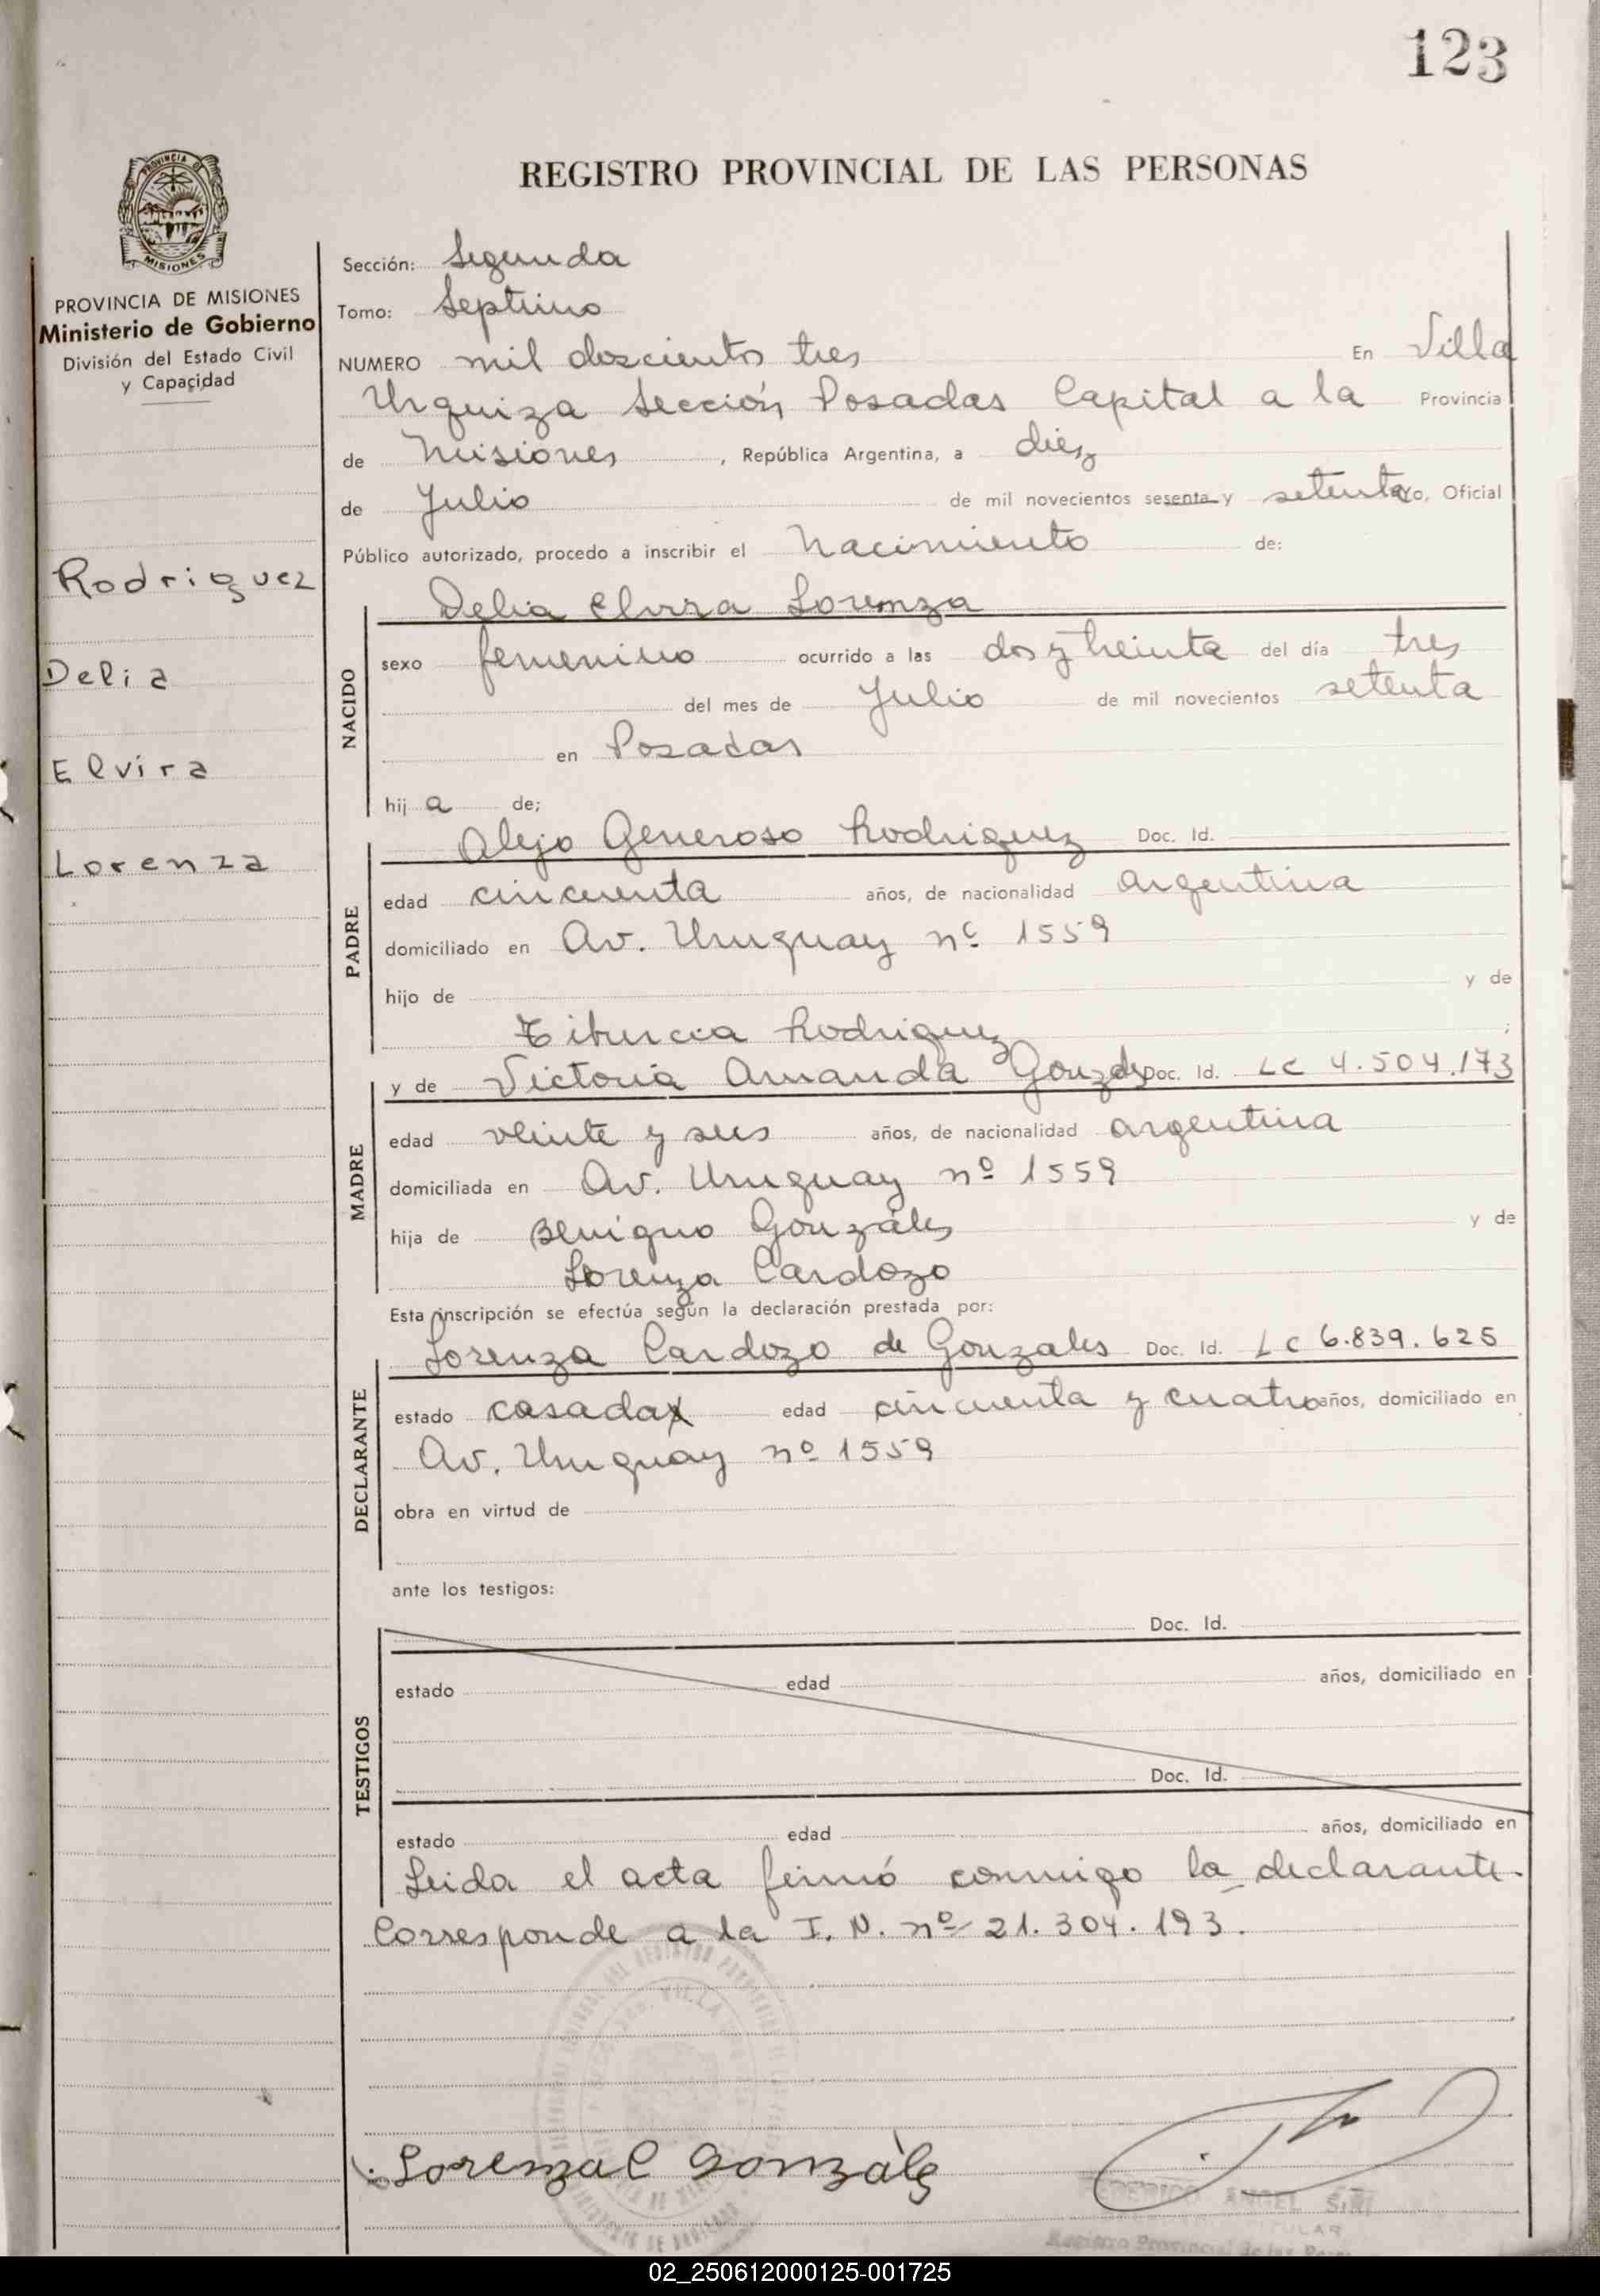 123
REGISTRO PROVINCIAL DE LAS PERSONAS
PROVINCIA DE MISIONES
PROVINCIA DE MISIONES
Ministerio de Gobierno
División del Estado Civil
y Capacidad
Rodriguez
Delia
Elvira
Lorenza
Sección: Segunda
Tomo: Septimo
NUMERO mil doscientos tres En Villa
Urquiza Sección Posadas Capital a la Provincia
de Misiones, República Argentina, a diez
de Julio de mil novecientos sesenta y setenta yo, Oficial
Público autorizado, procedo a inscribir el Nacimiento de:
Delia Elvira Lorenza
NACIDO
sexo femenino ocurrido a las dos y treinta del día tres
del mes de Julio de mil novecientos setenta
en Posadas
hij a de;
Alejo Generoso Rodriguez Doc. Id.
PADRE
edad cincuenta años, de nacionalidad argentina
domiciliado en Av. Uruguay nº 1559
hijo de y de
Tiburcia Rodriguez ;
y de Victoria Amanda Gonzales Doc. Id. LC 4.504.173
MADRE
edad veinte y seis años, de nacionalidad argentina
domiciliada en Av. Uruguay nº 1559
hija de Benigno Gonzáles y de
Lorenza Cardozo
Esta inscripción se efectúa según la declaración prestada por:
Lorenza Cardozo de Gonzales Doc. Id. LC 6.839.625
DECLARANTE
estado casada edad cincuenta y cuatro años, domiciliado en
Av. Uruguay nº 1559
obra en virtud de
ante los testigos:
Doc. Id.
TESTIGOS
estado edad años, domiciliado en
Doc. Id.
estado edad años, domiciliado en
Leida el acta firmó conmigo la declarante.
Corresponde a la I. N. nº 21.304.193.
Lorenza C Gonzáles
FEDERICO ANGEL
TITULAR
Registro Provincial de las
02_250612000125-001725